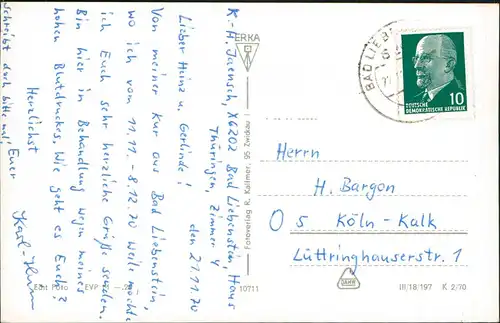 K.-H. Jaensch, X6202 Bad Liebenstein, Haus
Thüringen, Zimmer 4
den 21.11.70
Lieber Heinz u. Gerlinde!
Von meiner Kur aus Bad Liebenstein,
wo ich vom 11.11.-8.12.70 weile möchte
ich Euch sehr herzliche Grüße senden.
Bin hier in Behandlung wegen meines
hohen Blutdruckes. Wie geht es Euch?
Schreibt doch bitte mal!
Herzlichst
Euer
Karl-Heinz
ERKA
Fotoverlag R. Kallmer, 95 Zwickau
10711
EVP
BAD LIEBE
DEUTSCHE
DEMOKRATISCHE REPUBLIK
10
Herrn
H. Bargon
O 5 Köln-Kalk
Lüttringhauserstr. 1
III/18/197 K 2/70